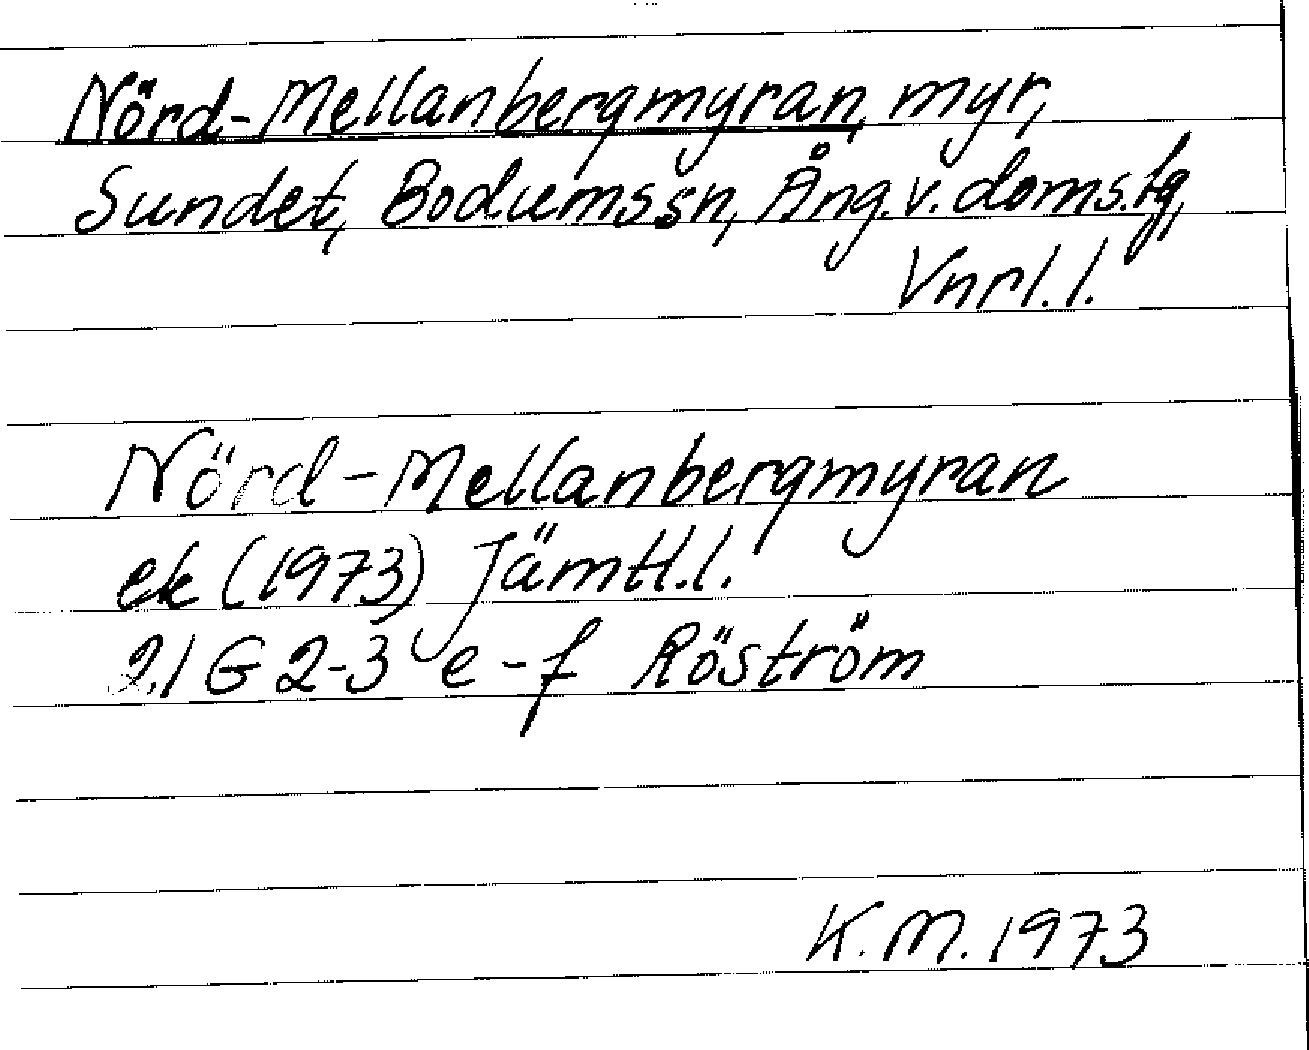 Nörd-Mellanbergmyran, myr,
Sundet, Bodumssn, Ång. v. doms.tg,
Vnrl. l.
Nörd-Mellanbergmyran
ek (1973) Jämtl. l.
21 G 2-3 e-f Röström
K. M. 1973